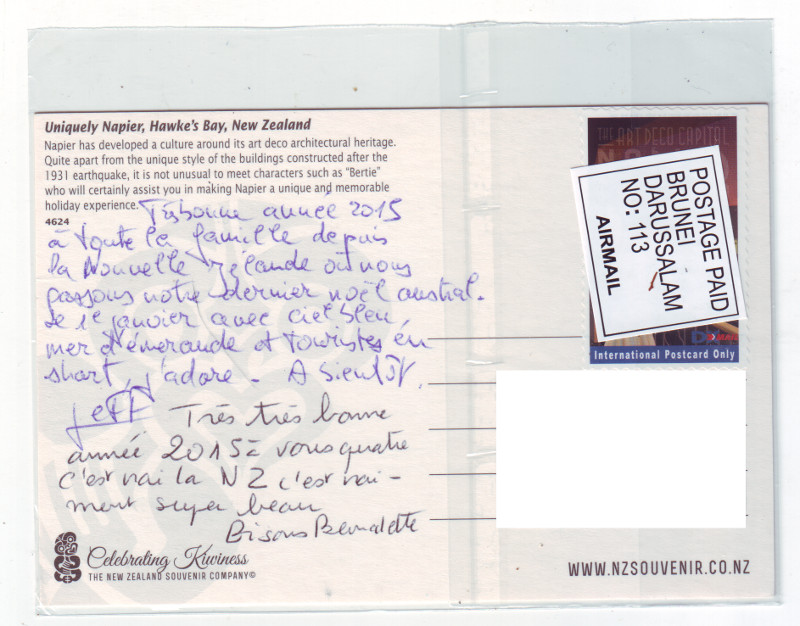 Uniquely Napier, Hawke's Bay, New Zealand
Napier has developed a culture around its art deco architectural heritage.
Quite apart from the unique style of the buildings constructed after the
1931 earthquake, it is not unusual to meet characters such as "Bertie"
who will certainly assist you in making Napier a unique and memorable
holiday experience.
4624
Très bonne année 2015
à toute la famille depuis
la Nouvelle Zélande où nous
passons notre dernier noël austral.
Le 1er janvier avec ciel bleu,
mer d'émeraude et touristes en
short, j'adore. A bientôt.
Jeff
Très très bonne
année 2015 à vous quatre
c'est vrai la NZ c'est vrai-
ment super beau
Bisous Bernadette
Celebrating Kiwiness
THE NEW ZEALAND SOUVENIR COMPANY©
THE ART DECO CAPITAL
POSTAGE PAID
BRUNEI
DARUSSALAM
NO: 113
AIRMAIL
International Postcard Only
WWW.NZSOUVENIR.CO.NZ